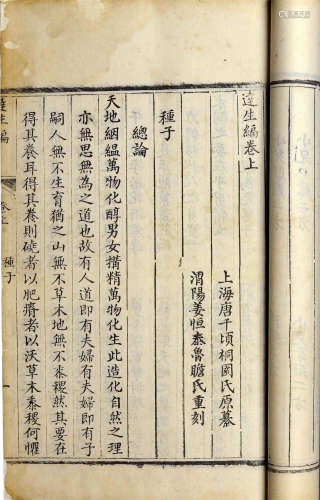 達生編卷上
上海唐千頃桐園氏原纂
渭陽姜恒泰魯瞻氏重刻
種子
總論
天地絪緼萬物化醇男女搆精萬物化生此造化自然之理
亦無思無為之道也故有人道即有夫婦有夫婦即有子
嗣人無不生育猶之山無不草木地無不黍稷然其要在
得其養耳得其養則磽者以肥瘠者以沃草木黍稷何懼
達生編
卷上
種子
一